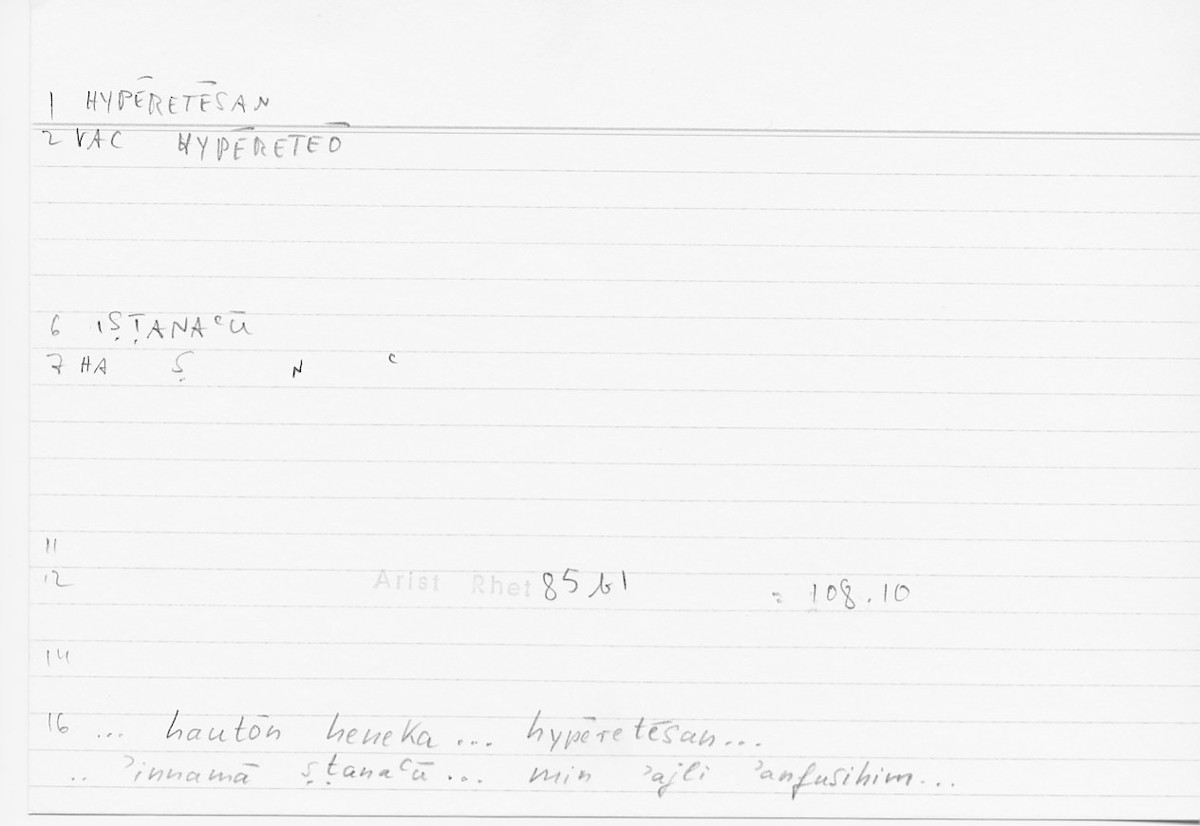 1 HYPĒRETĒSAN
2 VAC HYPĒRETEŌ
6 IṢṬANAʿŪ
7 HA Ṣ N ʿ
11
12 Arist Rhet 85 b1 = 108.10
14
16 ... hautōn heneka ... hypēretēsan ...
.. ʾinnamā ṣṭanaʿū ... min ʾajli ʾanfusihim ...